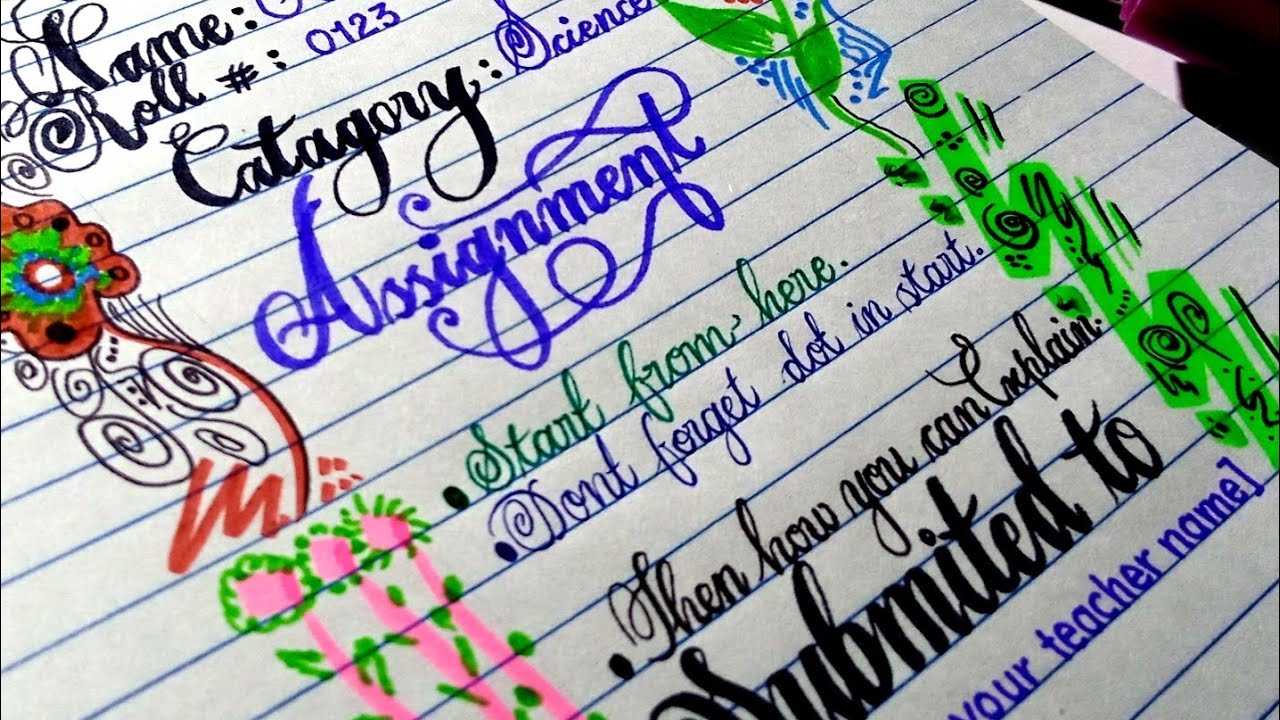 Name:
Roll #: 0123
Catagory: Science
Assignment
• Start from here.
• Dont forget dot in start.
• Then how you can Explain.
Submitted to
your teacher name]